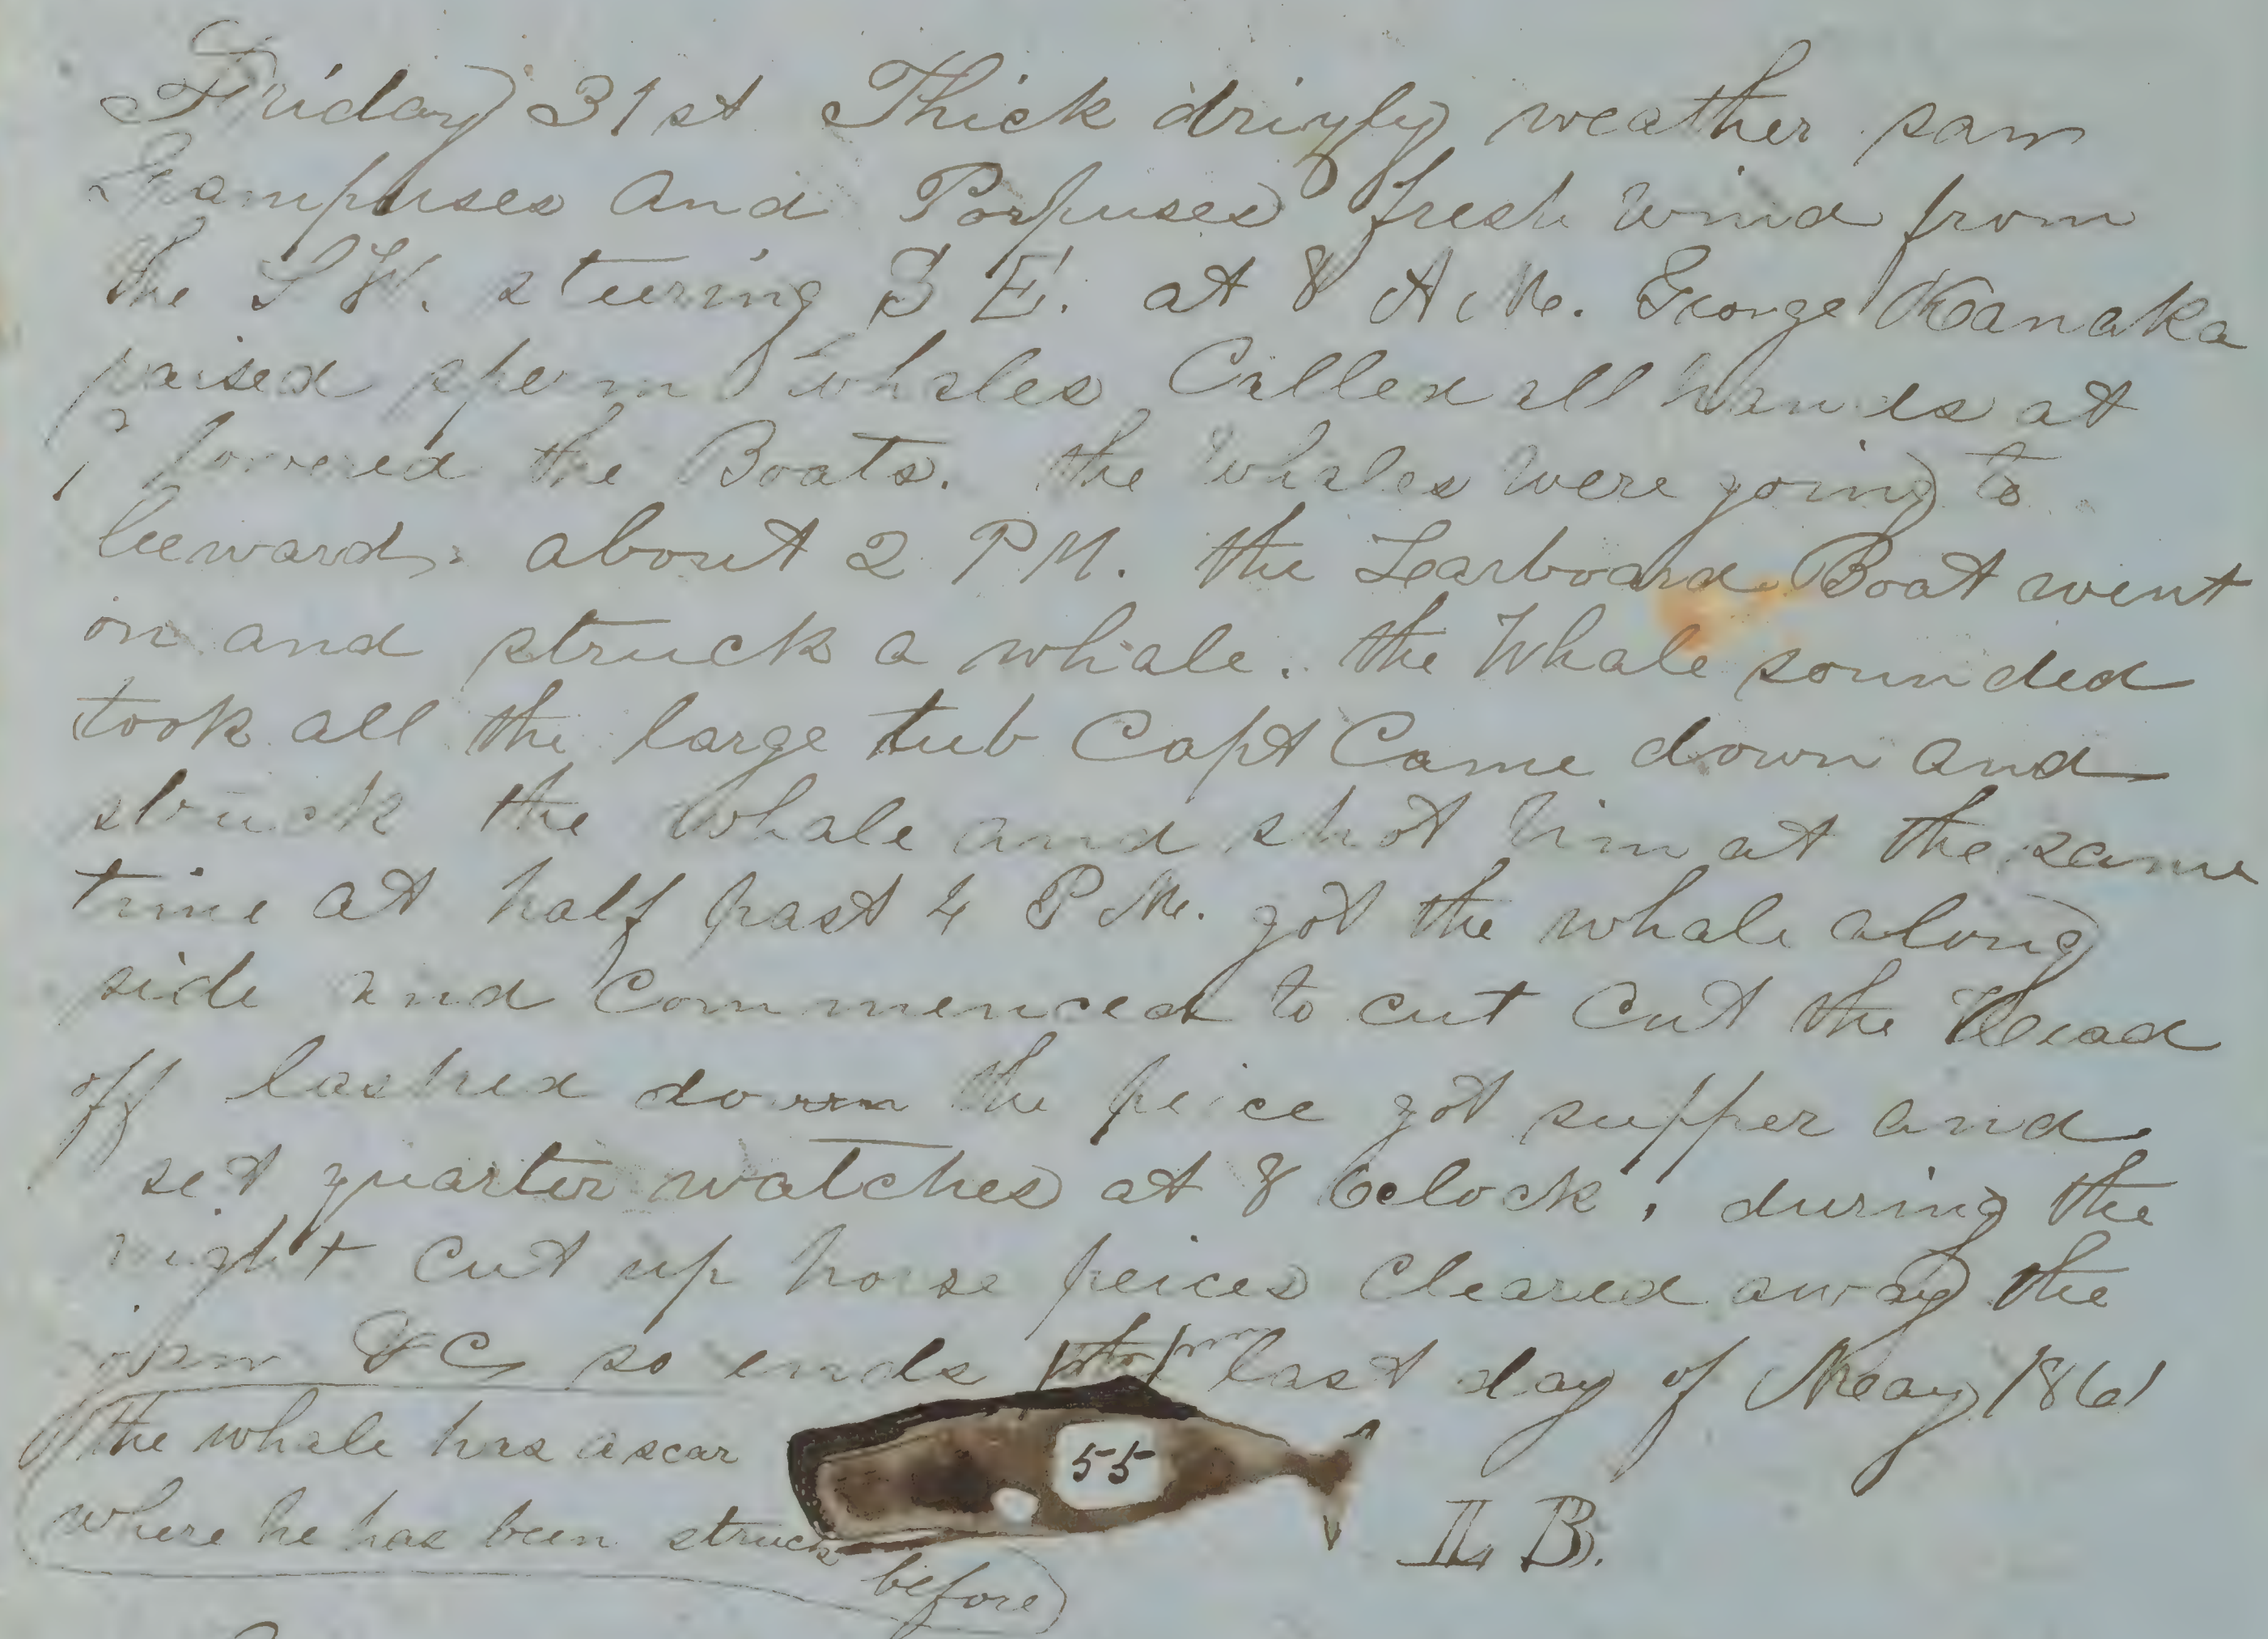 Friday 31st Thick drizly weather saw
Grampuses and Porpuses fresh wind from
the S W. steering S E. at 8 A.M. George Kanaka
raised sperm whales Called all hands at
9 lowered the Boats. the whales were going to
leeward. about 2 P M. the Larboard Boat went
on and struck a whale. the Whale sounded
took all the large tub Capt Came down and
struck the whale and shot him at the same
time at half past 4 P M. got the whale along
side and Commenced to cut Cut the Head
off lashed down the peice got supper and
set quarter watches at 8 Oclock, during the
night Cut up horse peices Cleared away the
jaw &C so ends last day of May 1861
the whale has a scar
where he has been struck
before
55
L B.